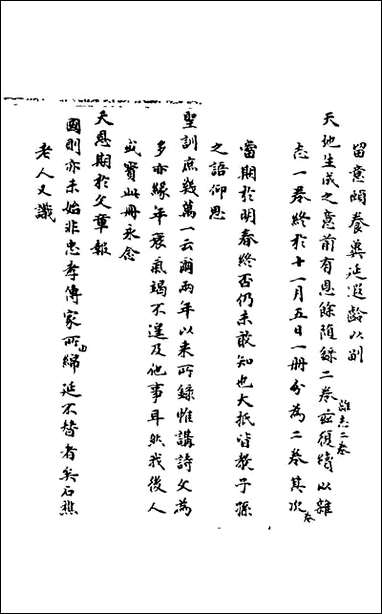 留意頤養冀延遐齡以副
天地生成之意前有恩餘隨錄二卷茲復續以雜
雜志二卷
志一卷終於十一月五日一冊分為二卷其次
卷
當期於明春終否仍未敢知也大抵皆教子孫
之語仰思
聖訓庶幾萬一云爾兩年以來所錄惟講詩文為
多亦緣年衰氣竭不遑及他事耳然我後人
或寶此冊永念
天恩期於文章報
國則亦未始非忠孝傳家所綿延不替者矣石樵
由
老人又識